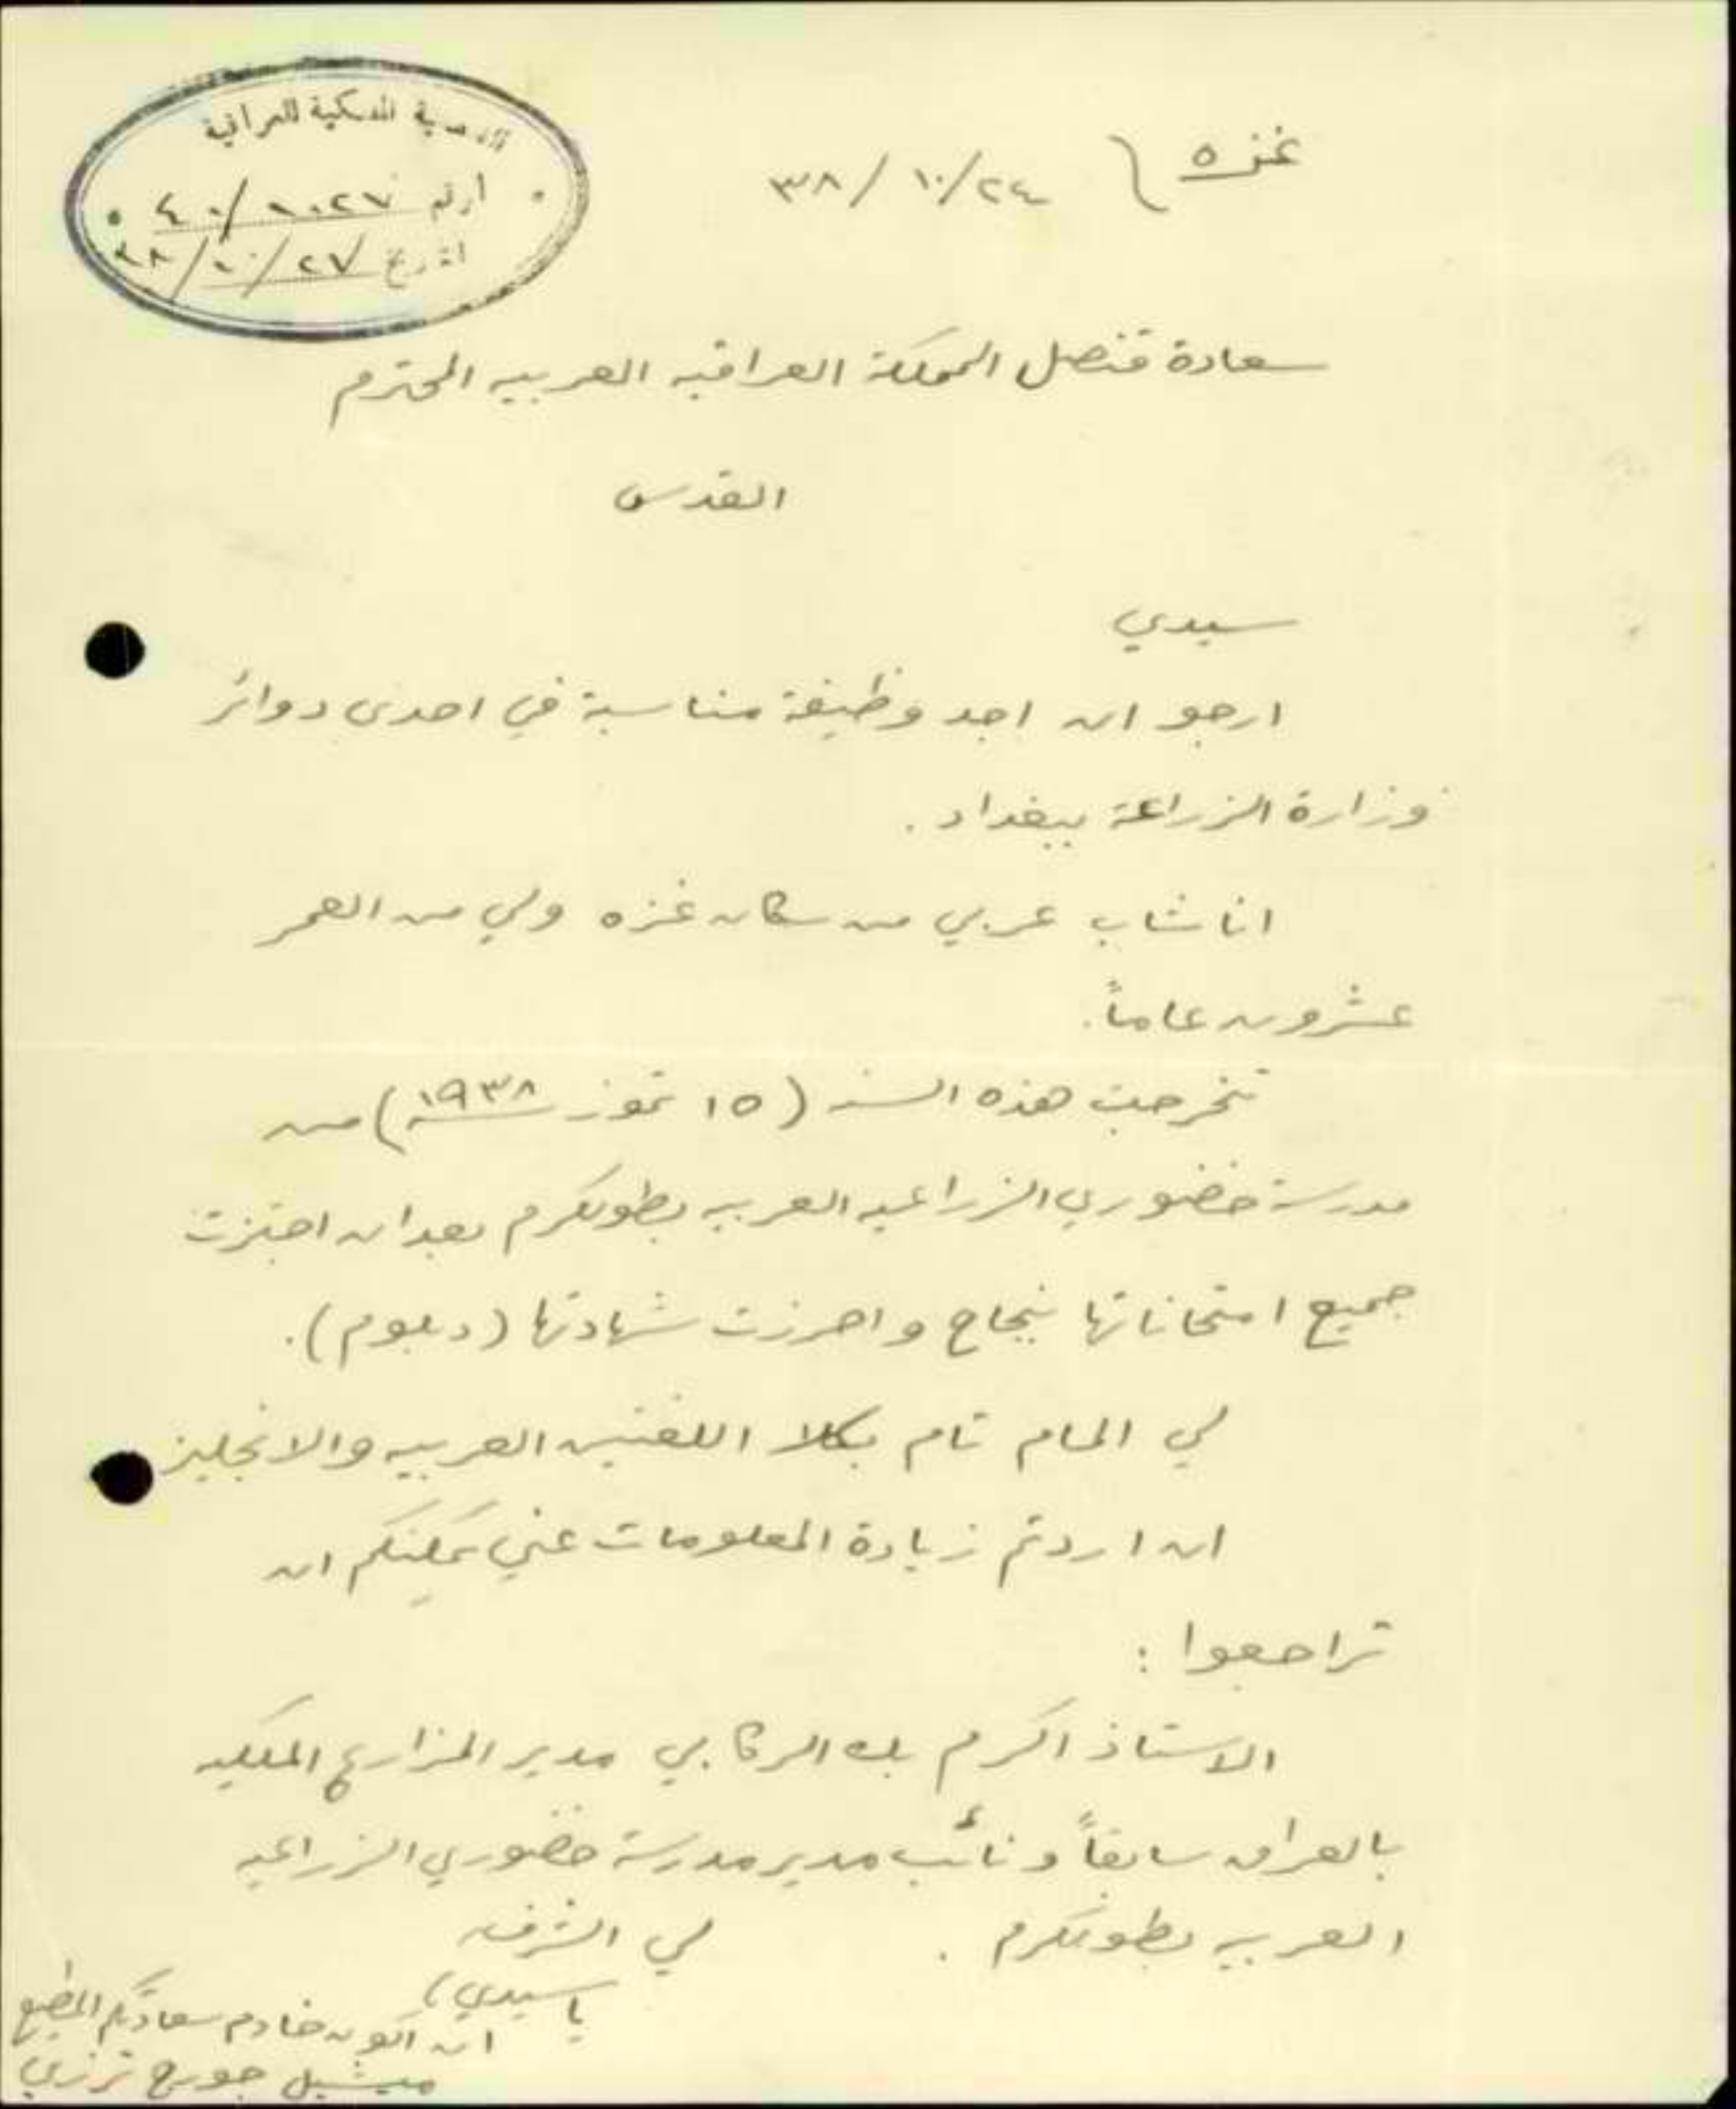 القنصلية الملكية العراقية
الرقم ١٠٢٧/٤٠
التاريخ ٢٧/١٠/٣٨
غزه ٢٤/١٠/٣٨
سعادة قنصل المملكة العراقيه العربيه المحترم
القدس
سيدي
ارجو ان اجد وظيفة مناسبة في احدى دوائر
وزارة الزراعة ببغداد .
انا شاب عربي من سكان غزه ولي من العمر
عشرون عاماً .
تخرجت هذه السنه (١٥ تموز سنة ١٩٣٨) من
مدرسة خضوري الزراعيه العربيه بطولكرم بعد ان اجتزت
جميع امتحاناتها بنجاح واحرزت شهادتها (دبلوم) .
لي المام تام بكلا اللغتين العربيه والانجليز
ان اردتم زيادة المعلومات عني يمكنكم ان
تراجعوا :
الاستاذ اكرم بك الركابي مدير المزارع الملكيه
بالعراق سابقاً ونائب مدير مدرسة خضوري الزراعيه
العربيه بطولكرم .
لي الشرف
يا سيدي ،
ان اكون خادم سعادتكم المطيع
ميشيل جورج ترزي